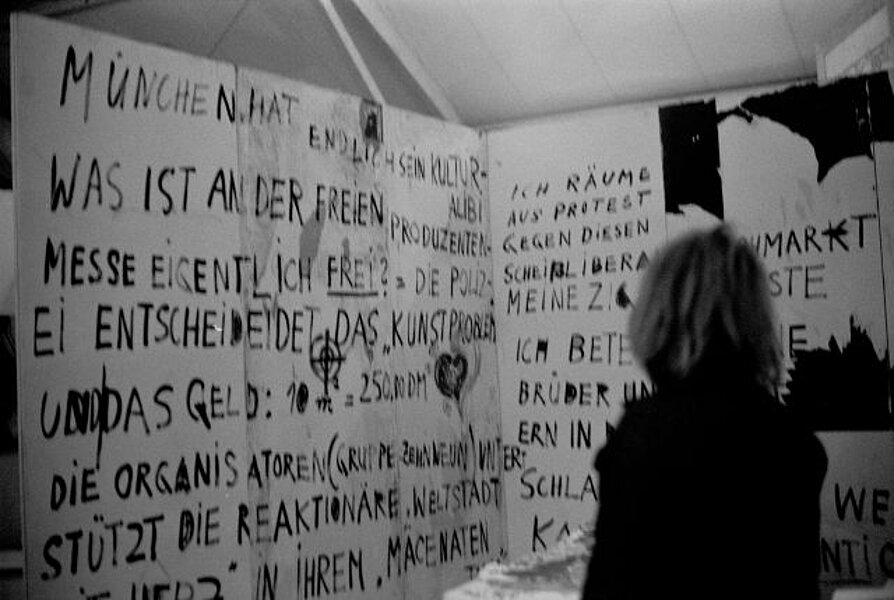 MÜNCHEN HAT
ENDLICH SEIN KULTUR-
ALIBI
WAS IST AN DER FREIEN
PRODUZENTEN-
MESSE EIGENTLICH FREI? = DIE POLIZ-
EI ENTSCHEIDEIDET DAS „KUNSTPROBLEM
UND DAS GELD: 10 m² = 250,00 DM
DIE ORGANISATOREN (GRUPPE ZEHN NEUN) UNTER:
STÜTZT DIE REAKTIONÄRE „WELTSTADT
HERZ" IN IHREM „MÄCENATEN
ICH RÄUME
AUS PROTEST
GEGEN DIESEN
SCHEIßLIBERA
MEINE
ICH BETE
BRÜDER UN
ERN IN
SCHLA
KA
MARKT
STE
E
WE
NTI